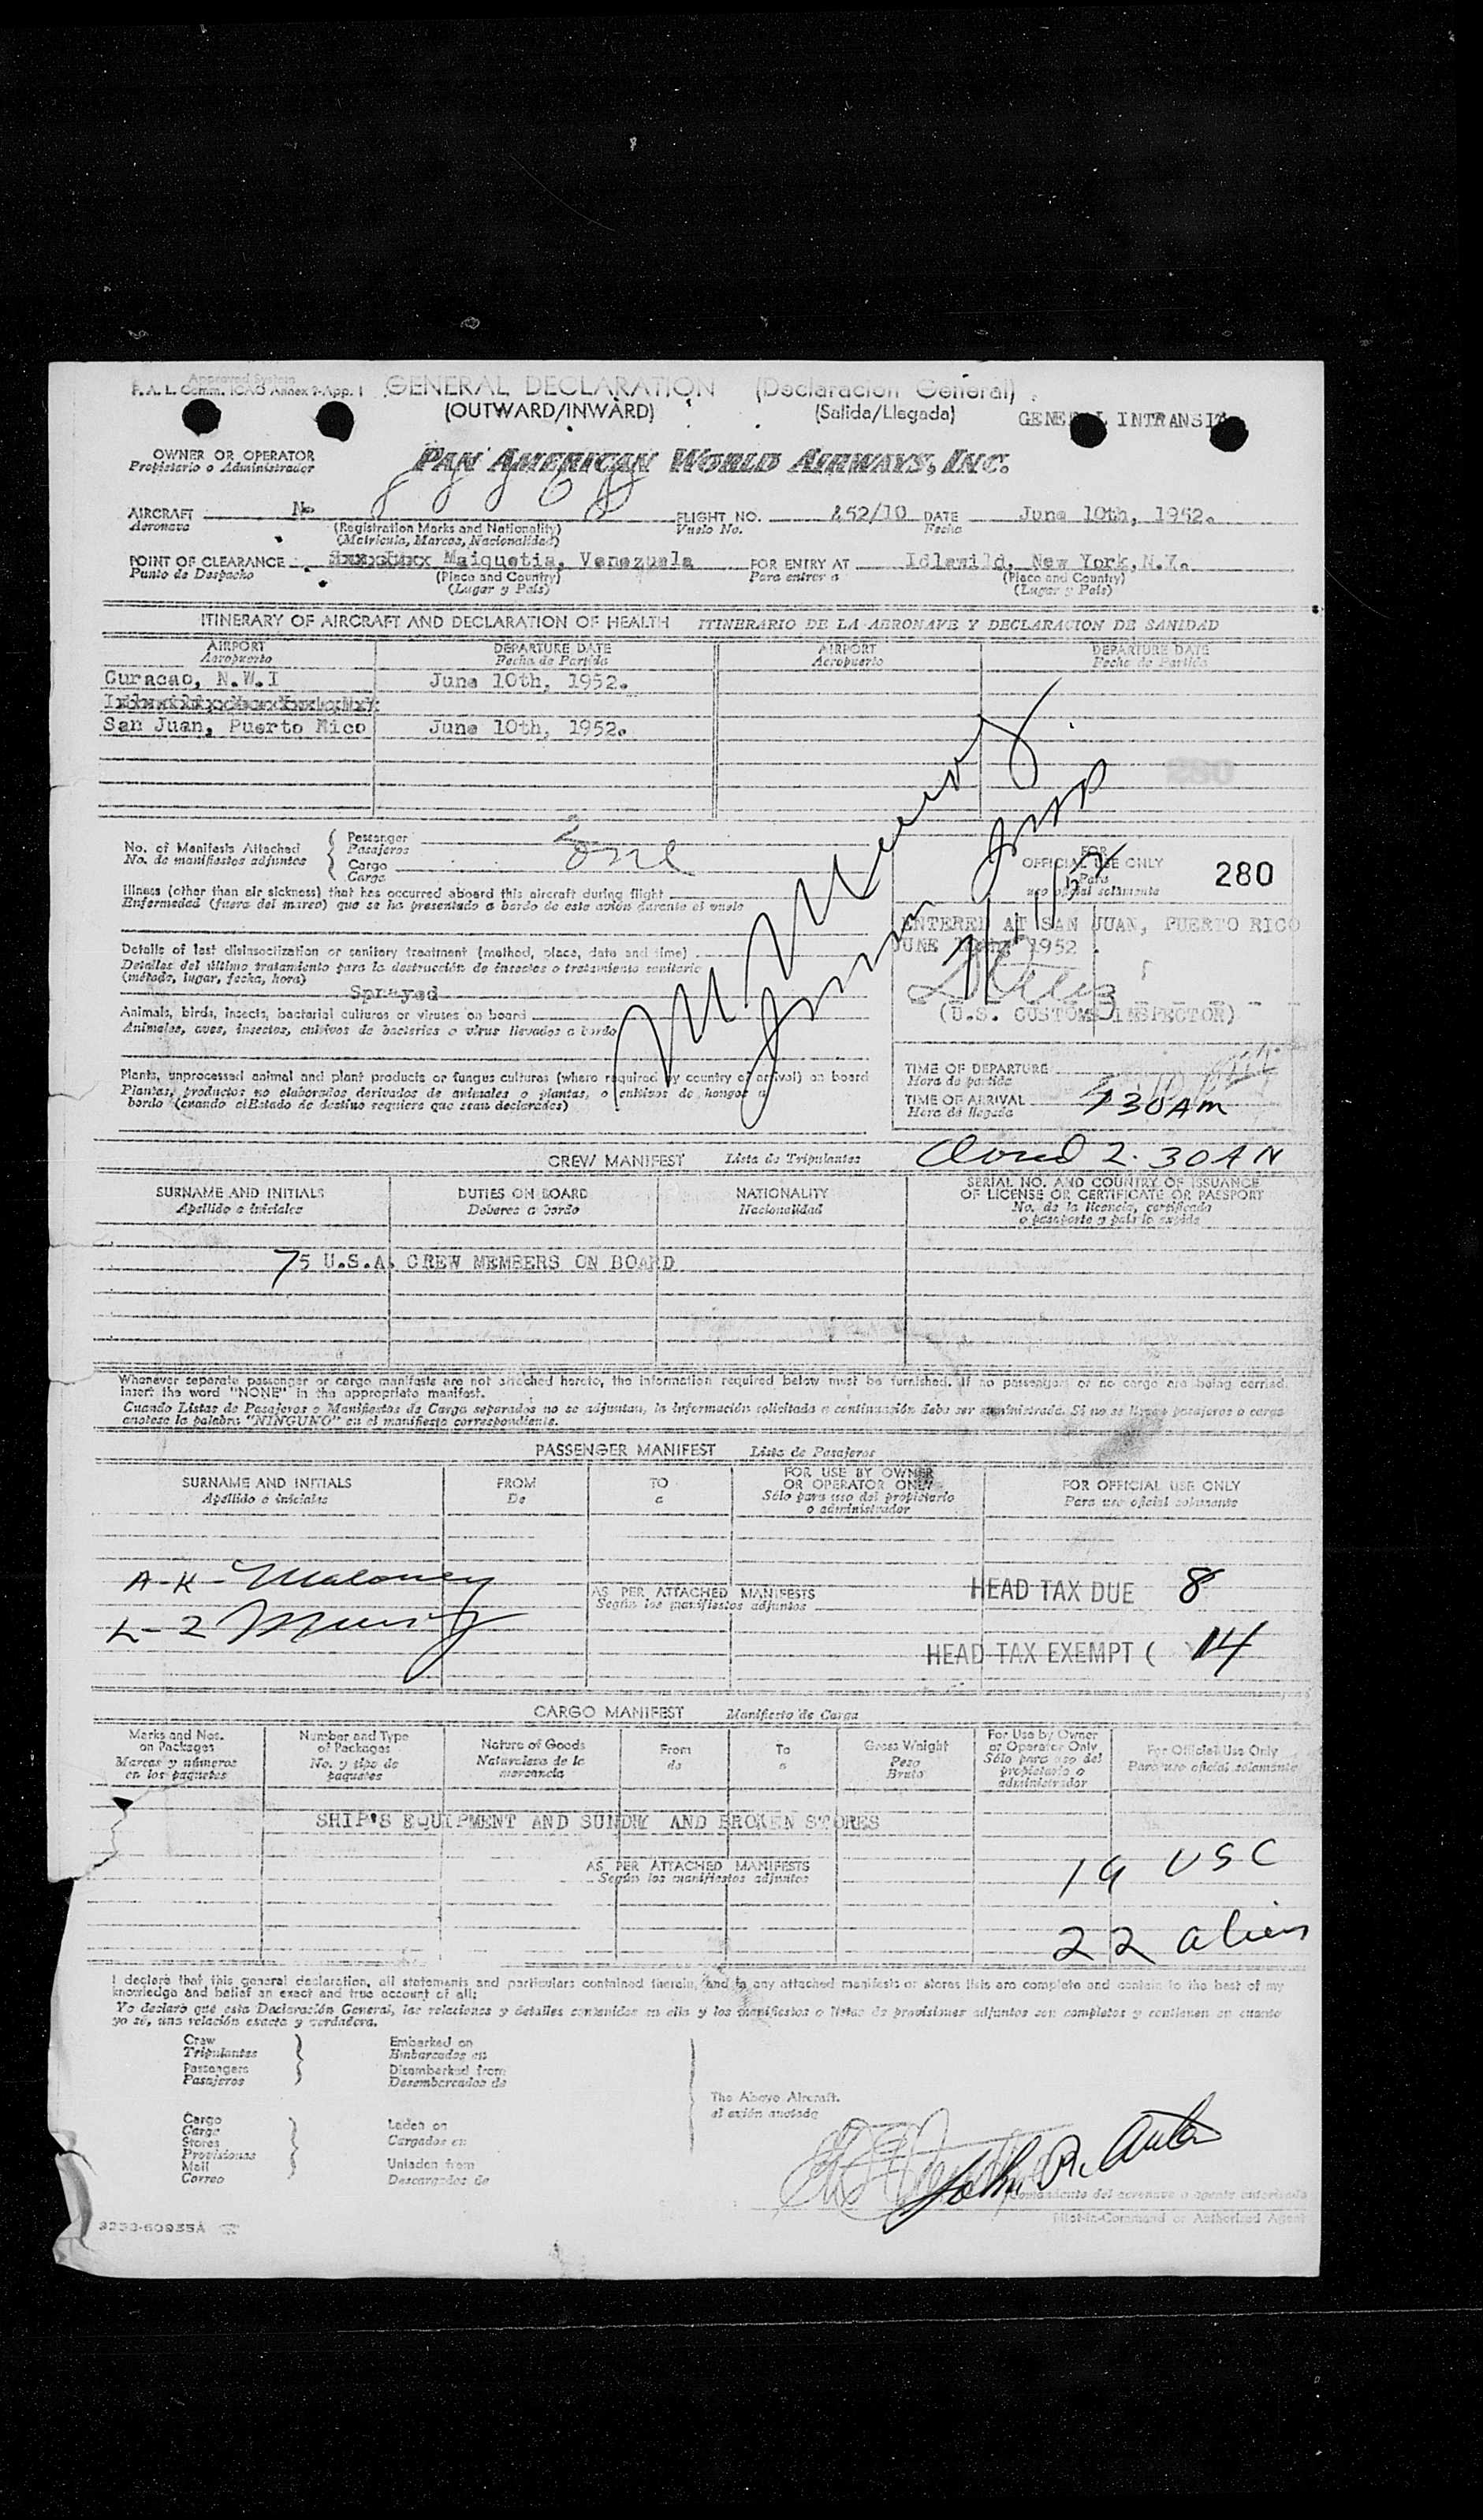 Approved System
F. A. L. Comm. ICAO Annex 9-App. 1
GENERAL DECLARATION (Declaracion General)
(OUTWARD/INWARD) (Salida/Llegada)
GENERAL INTRANSIT
OWNER OR OPERATOR
Propietario o Administrador
PAN AMERICAN WORLD AIRWAYS, INC.
AIRCRAFT N- FLIGHT NO. 252/10 DATE June 10th, 1952.
Aeronave (Registration Marks and Nationality) Vuelo No. Fecha
(Matricula, Marcas, Nacionalidad)
POINT OF CLEARANCE Maiquetia, Venezuela FOR ENTRY AT Idlewild, New York, N.Y.
Punto de Despacho (Place and Country) Para entrar a (Place and Country)
(Lugar y País) (Lugar y País)
ITINERARY OF AIRCRAFT AND DECLARATION OF HEALTH ITINERARIO DE LA AERONAVE Y DECLARACION DE SANIDAD
AIRPORT DEPARTURE DATE AIRPORT DEPARTURE DATE
Aeropuerto Fecha de Partida Aeropuerto Fecha de Partida
Curacao, N.W.I June 10th, 1952.
San Juan, Puerto Rico June 10th, 1952.
280
No. of Manifests Attached
No. de manifiestos adjuntos
Passenger 2
Pasajeros
Cargo one
Carga
FOR
OFFICIAL USE ONLY
Para
uso oficial solamente
280
Illness (other than air sickness) that has occurred aboard this aircraft during flight
Enfermedad (fuera del mareo) que se ha presentado a bordo de este avión durante el vuelo
ENTERED AT SAN JUAN, PUERTO RICO
JUNE 1952
Details of last disinsectization or sanitary treatment (method, place, date and time)
Detalles del último tratamiento para la destrucción de insectos o tratamiento sanitario
(método, lugar, fecha, hora)
Sprayed
(U.S. CUSTOMS INSPECTOR)
Animals, birds, insects, bacterial cultures or viruses on board
Animales, aves, insectos, cultivos de bacterias o virus llevados a bordo
Plants, unprocessed animal and plant products or fungus cultures (where required by country of arrival) on board
Plantas, productos no elaborados derivados de animales o plantas, o cultivos de hongos a
bordo (cuando el Estado de destino requiere que sean declarados)
TIME OF DEPARTURE
Hora de partida
TIME OF ARRIVAL 1 30 AM
Hora de llegada
Closed 2.30 AM
CREW MANIFEST Lista de Tripulantes
SURNAME AND INITIALS DUTIES ON BOARD NATIONALITY SERIAL NO. AND COUNTRY OF ISSUANCE
OF LICENSE OR CERTIFICATE OR PASSPORT
Apellido e iniciales Deberes a bordo Nacionalidad No. de la licencia, certificado
o pasaporte y pais lo expide
75 U.S.A. CREW MEMBERS ON BOARD
Whenever separate passenger or cargo manifests are not attached hereto, the information required below must be furnished. If no passengers or no cargo are being carried,
insert the word "NONE" in the appropriate manifest.
Cuando Listas de Pasajeros o Manifiestos de Carga separados no se adjuntan, la información solicitada a continuación debe ser suministrada. Si no se llevan pasajeros o carga
anótese la palabra "NINGUNO" en el manifiesto correspondiente.
PASSENGER MANIFEST Lista de Pasajeros
SURNAME AND INITIALS FROM TO FOR USE BY OWNER
OR OPERATOR ONLY FOR OFFICIAL USE ONLY
Apellido e iniciales De a Sólo para uso del propietario
o administrador Para uso oficial solamente
A-K- Maloney
AS PER ATTACHED MANIFESTS
Según los manifiestos adjuntos
HEAD TAX DUE 8
L-Z
HEAD TAX EXEMPT ( 14
CARGO MANIFEST Manifiesto de Carga
Marks and Nos.
on Packages
Marcas y números
en los paquetes
Number and Type
of Packages
No. y tipo de
paquetes
Nature of Goods
Naturaleza de la
mercancía
From
de
To
a
Gross Weight
Peso
Bruto
For Use by Owner
or Operator Only
Sólo para uso del
propietario o
administrador
For Official Use Only
Para uso oficial solamente
SHIP'S EQUIPMENT AND SUNDRY AND BROKEN STORES
AS PER ATTACHED MANIFESTS
Según los manifiestos adjuntos
19 USC
22 alien
I declare that this general declaration, all statements and particulars contained therein, and in any attached manifests or stores lists are complete and contain to the best of my
knowledge and belief an exact and true account of all:
Yo declaro que esta Declaración General, las relaciones y detalles contenidos en ella y los manifiestos o listas de provisiones adjuntos son completos y contienen en cuanto
yo sé, una relación exacta y verdadera.
Crew
Tripulantes
Passengers
Pasajeros
Embarked on
Embarcados en
Disembarked from
Desembarcados de
The Above Aircraft.
el avión anotado
Cargo
Carga
Stores
Provisiones
Mail
Correo
Laden on
Cargados en
Unladen from
Descargados de
John R.
Comandante del aeronave o agente autorizado
Pilot-in-Command or Authorized Agent